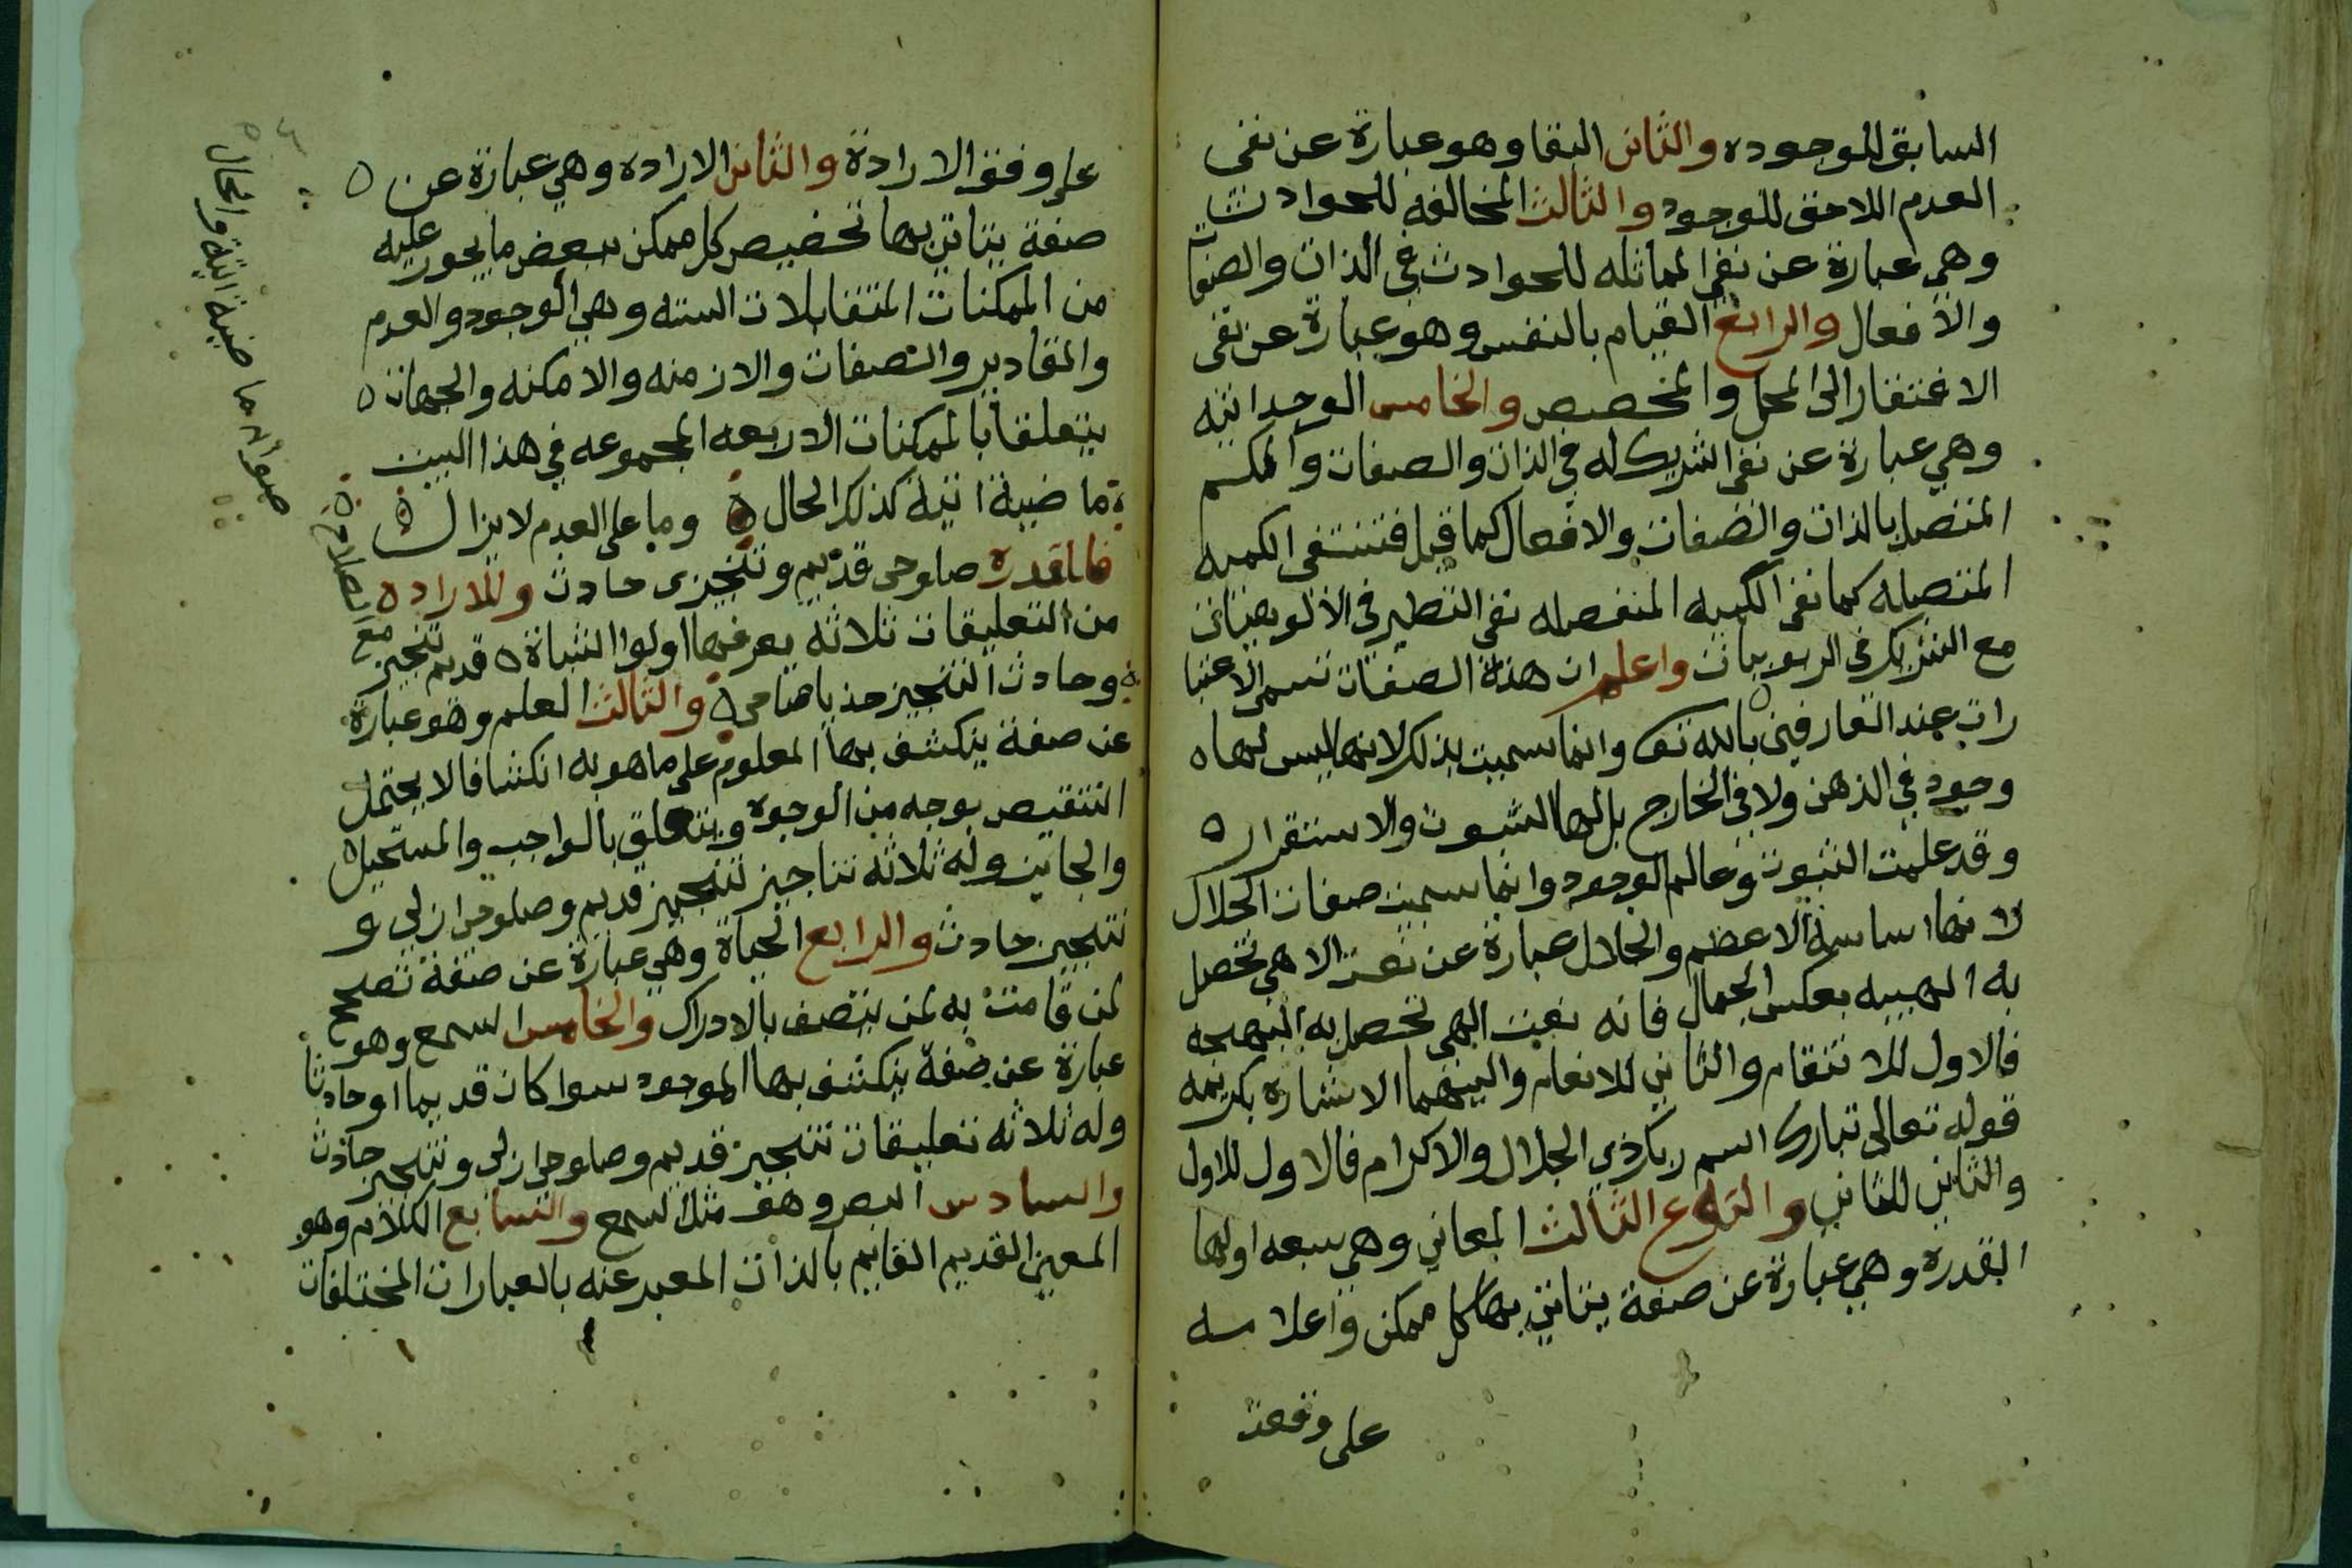 السابق للوجوده والثانى البقا وهو عبارة عن نفى
العدم اللاحق للوجود والثالث المخالفه للحوادث
وهى عبارة عن نفى المماثله للحوادث فى الذات والصفات
والافعال والرابع القيام بالنفس وهو عبارة عن نفى
الافتقار الى المحل والمخصص والخامس الوحدانيه
وهي عبارة عن نفى الشريك له في الذات والصفات والكم
المتصل بالذات والصفات والافعال كما قيل فتنتفى الكميه
المتصله كما نفى الكميه المنفصله نفى النظير فى الالوهيات
مع الشريك فى الربوبيات واعلم ان هذه الصفات تسمى الاعتبا
رات عند العارفين بالله تعا وانما سميت بذلك لانها ليس لها
وجود في الذهن ولا فى الخارج بل لها الثبوت والاستقرار
وقد علمت الثبوت وعالم الوجود وانما سميت صفات الجلال
لانها اساسه الاعظم والجلال عبارة عن نعت الاهى تحصل
به الهيبه بعكس الجمال فانه نعت الهى تحصل به البهجه
فالاول للانتقام والثاني للانعام واليهما الاشاره بكريمه
قوله تعالى تبارك اسم ربك ذي الجلال والاكرام فالاول للاول
والثاني للثاني والنوع الثالث المعاني وهي سبعه اولها
القدره وهي عبارة عن صفة يتاتى بها كل ممكن واعدامه
على وفق
على وفق الارادة والثانى الاراده وهي عبارة عن
صفة يتاتى بها تخصيص كل ممكن ببعض ما يجوز عليه
من الممكنات المتقابلات السته وهي الوجود والعدم
والمقادير والصفات والازمنه والامكنه والجهات
يتعلقا بالممكنات الاربعه المجموعه في هذا البيت
ما ضية اتية كذلك الحال وما على العدم لا يزال
فللقدره صلوحى قديم وتنجيزى حادث وللاراده
من التعليقات ثلاثه يعرفها اولوا الثبات قديم تنجيز مع الصلاحى
وحادث التنجيز خذ يا صاحى والثالث العلم وهو عبارة
عن صفة ينكشف بها المعلوم على ما هو به انكشافا لا يحتمل
النقيص بوجه من الوجوه ويتعلق بالواجب والمستحيل
والجائز وله ثلاثه تناجيز تنجيز قديم وصلوحى ازلي و
تنجيز حادث والرابع الحياة وهي عبارة عن صفة تصحح
لمن قامت به لمن يتصف بالادراك والخامس السمع وهو
عبارة عن صفة ينكشف بها الموجود سوا كان قديما او حادثا
وله ثلاثه تعليقات تنجيز قديم وصلوحى ازلى وتنجيز حادث
والسادس البصر وهو مثل السمع والسابع الكلام وهو
المعنى القديم القايم بالذات المعبر عنه بالعبارات المختلفات
صوابه ما ضية اتية والحال